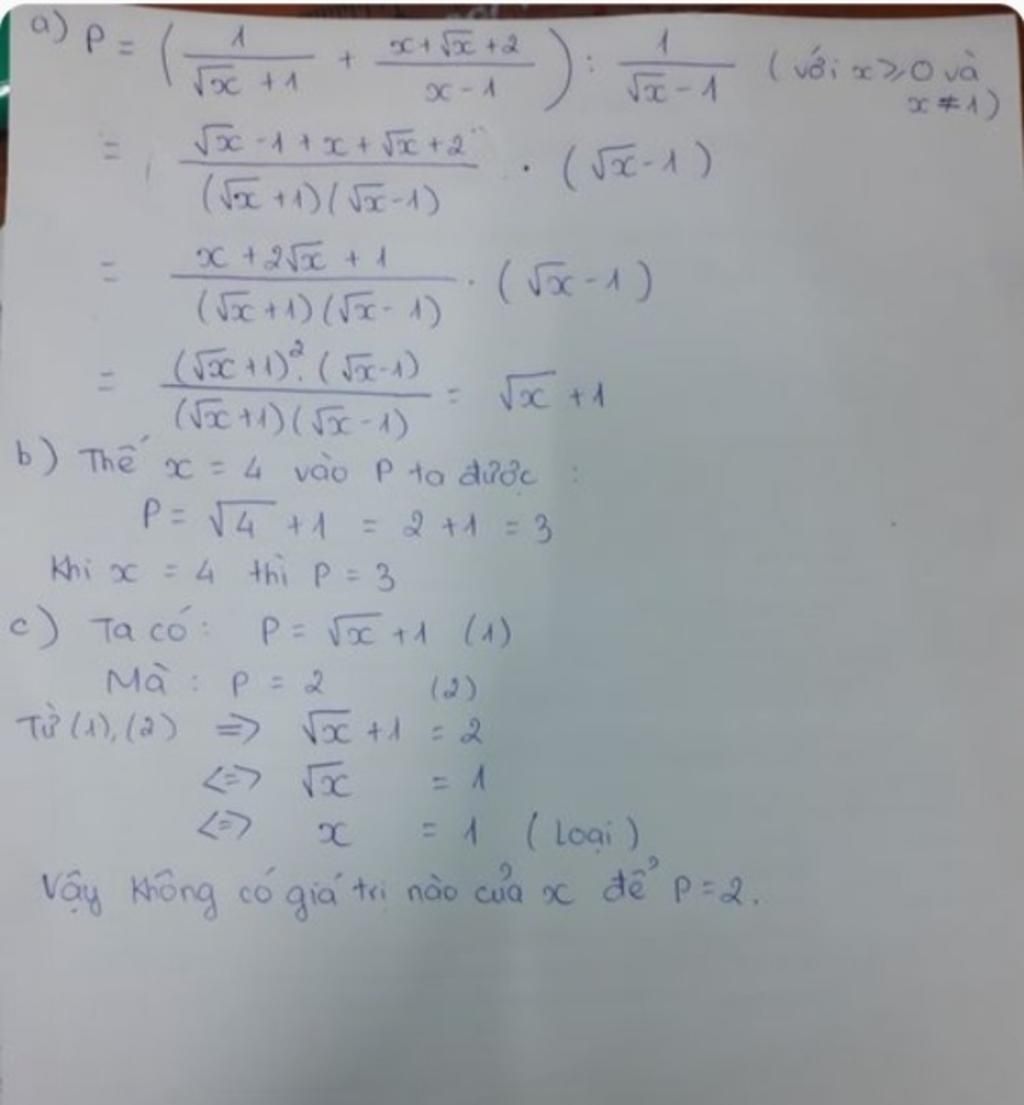 a) P = ( 1/(√x + 1) + (x + √x + 2)/(x - 1) ) : 1/(√x - 1) (với x ≥ 0 và x ≠ 1)
= (√x - 1 + x + √x + 2)/((√x + 1)(√x - 1)) . (√x - 1)
= (x + 2√x + 1)/((√x + 1)(√x - 1)) . (√x - 1)
= ((√x + 1)². (√x - 1))/((√x + 1)(√x - 1)) = √x + 1
b) Thế x = 4 vào P ta được :
P = √4 + 1 = 2 + 1 = 3
Khi x = 4 thì P = 3
c) Ta có : P = √x + 1 (1)
Mà : P = 2 (2)
Từ (1), (2) => √x + 1 = 2
<=> √x = 1
<=> x = 1 (Loại)
Vậy không có giá trị nào của x để P = 2.